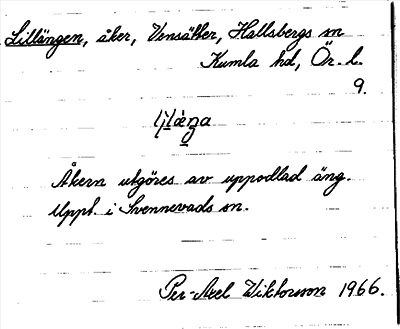 Lillängen, åker, Vensätter, Hallsbergs sn
Kumla hd, Ör. l.
9.
Åkern utgöres av uppodlad äng.
Uppt. i Svennevads sn.
Per-Axel Wiktorsson 1966.